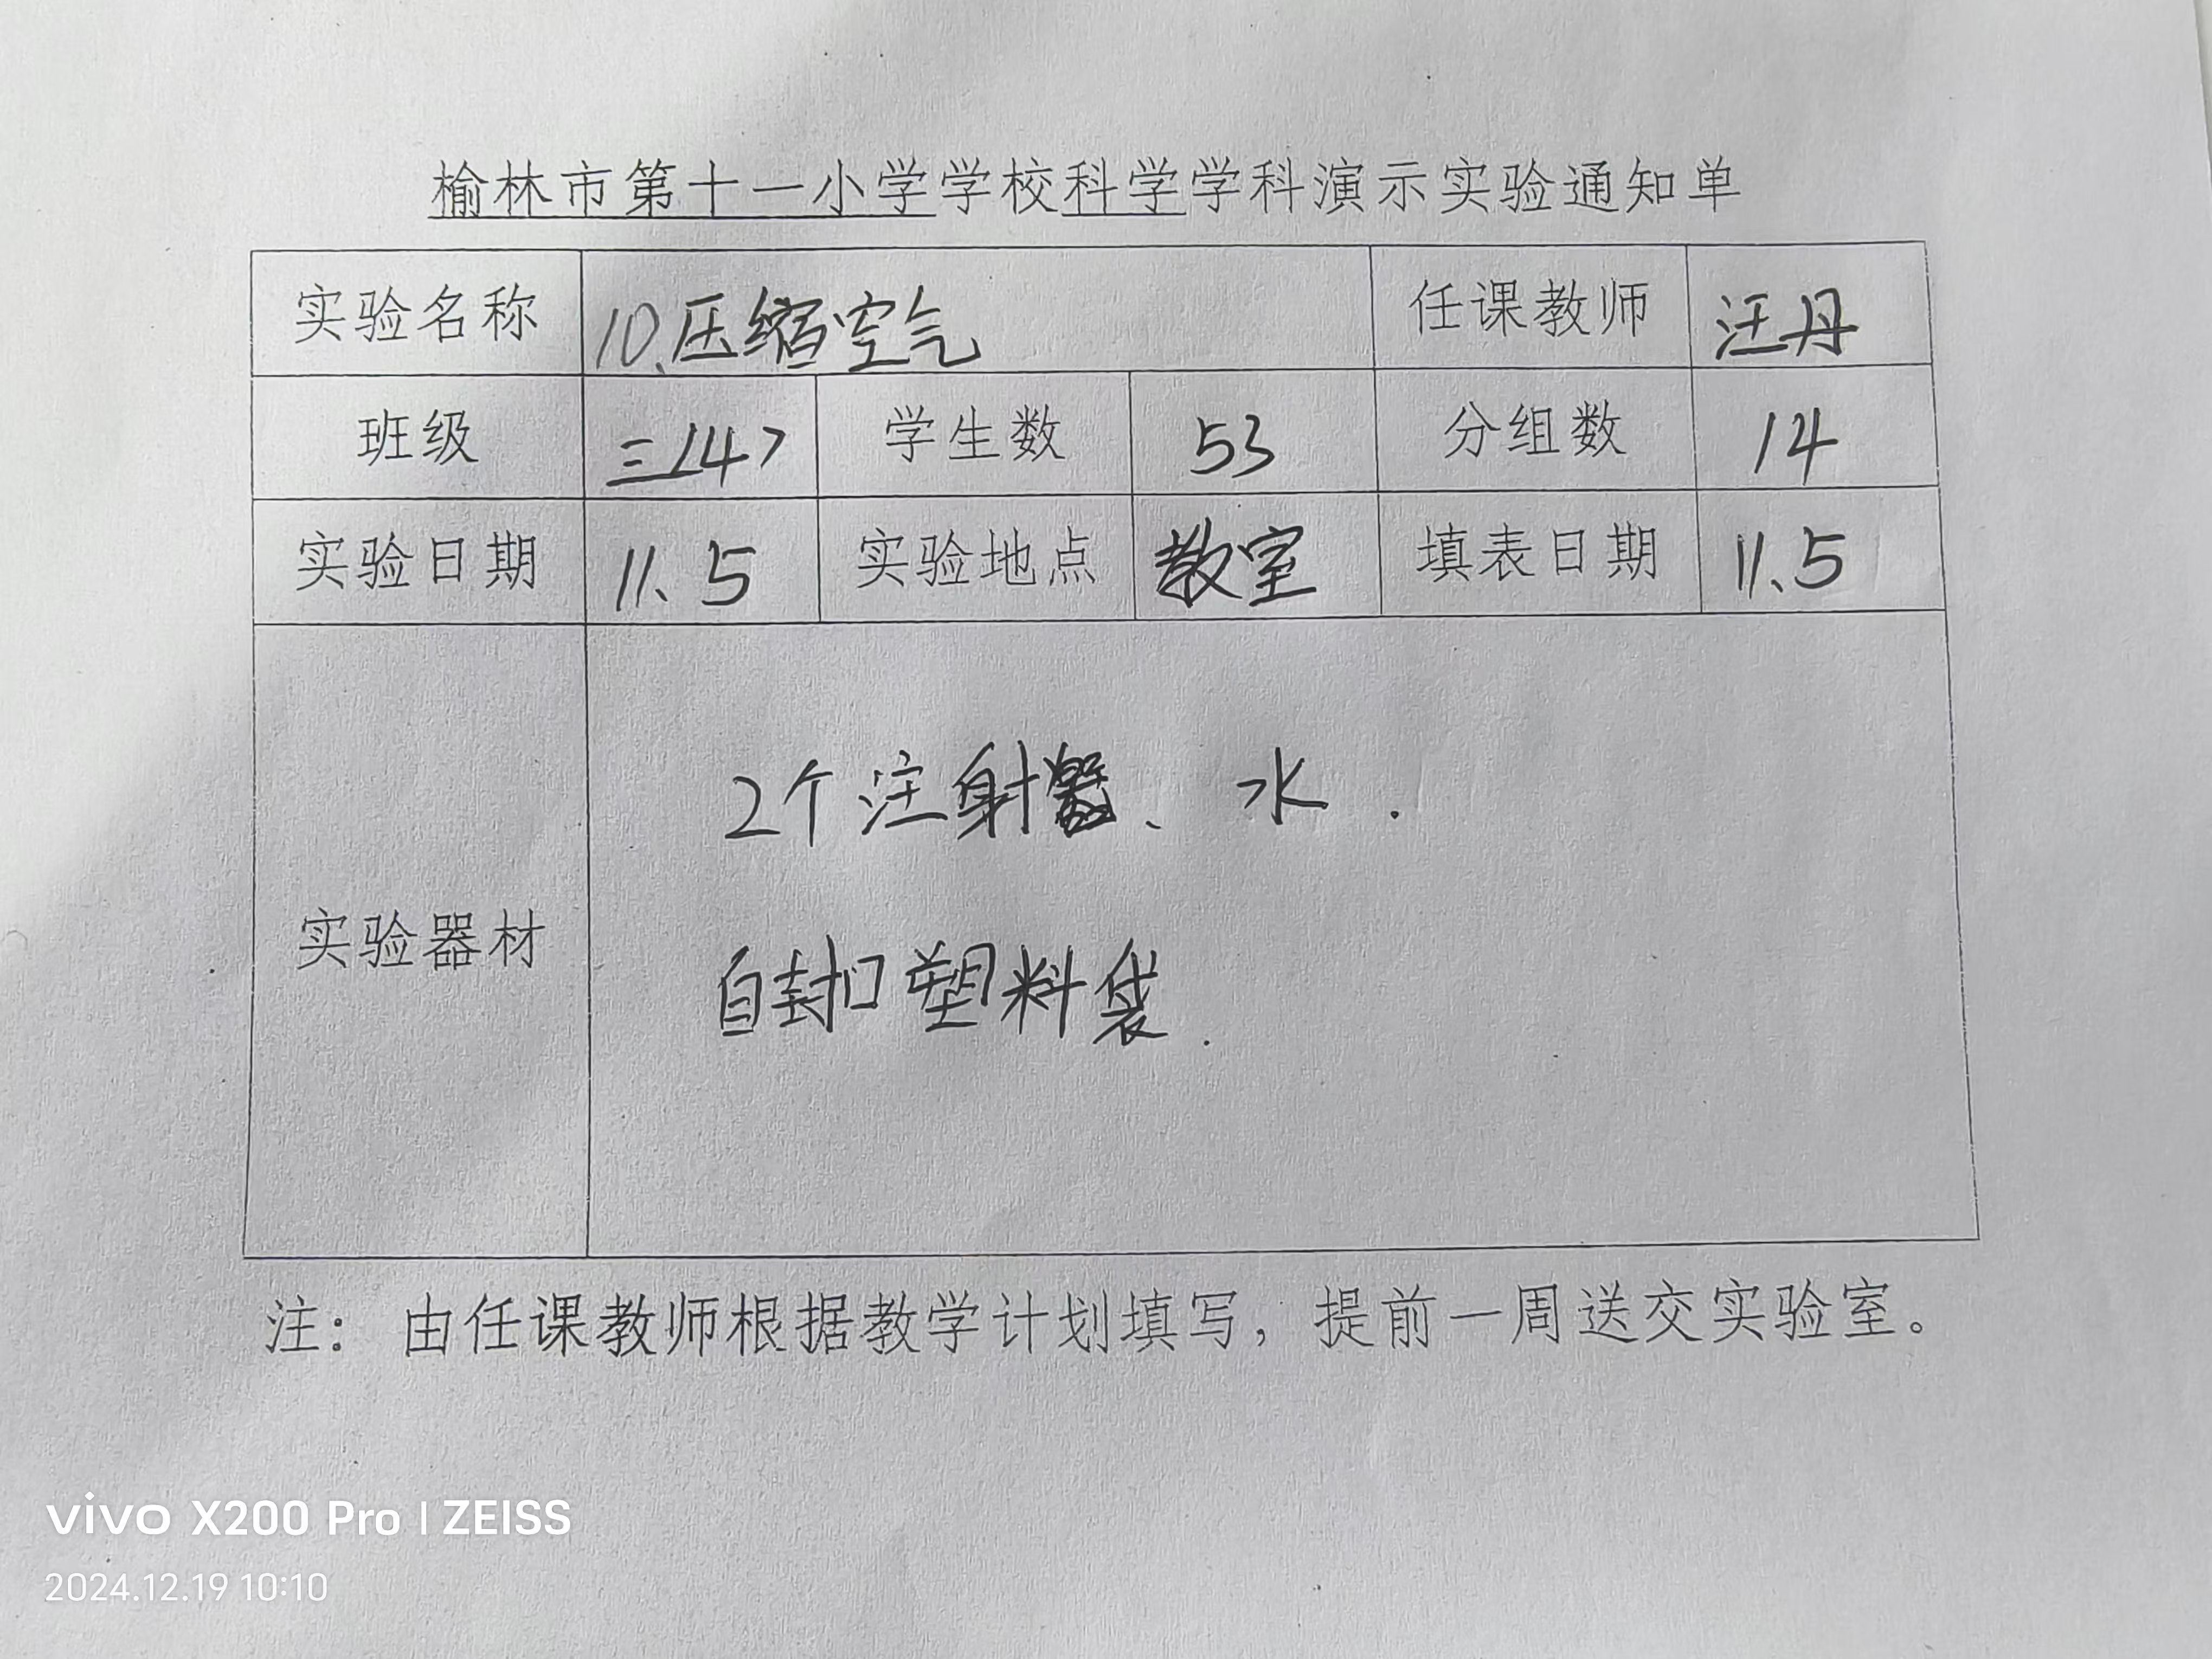 榆林市第十一小学学校科学学科演示实验通知单
实验名称 10、压缩空气 任课教师 汪丹
班级 三〈4〉 学生数 53 分组数 14
实验日期 11、5 实验地点 教室 填表日期 11、5
2个注射器、水.
实验器材
自封口塑料袋.
注：由任课教师根据教学计划填写，提前一周送交实验室。
vivo X200 Pro | ZEISS
2024.12.19 10:10